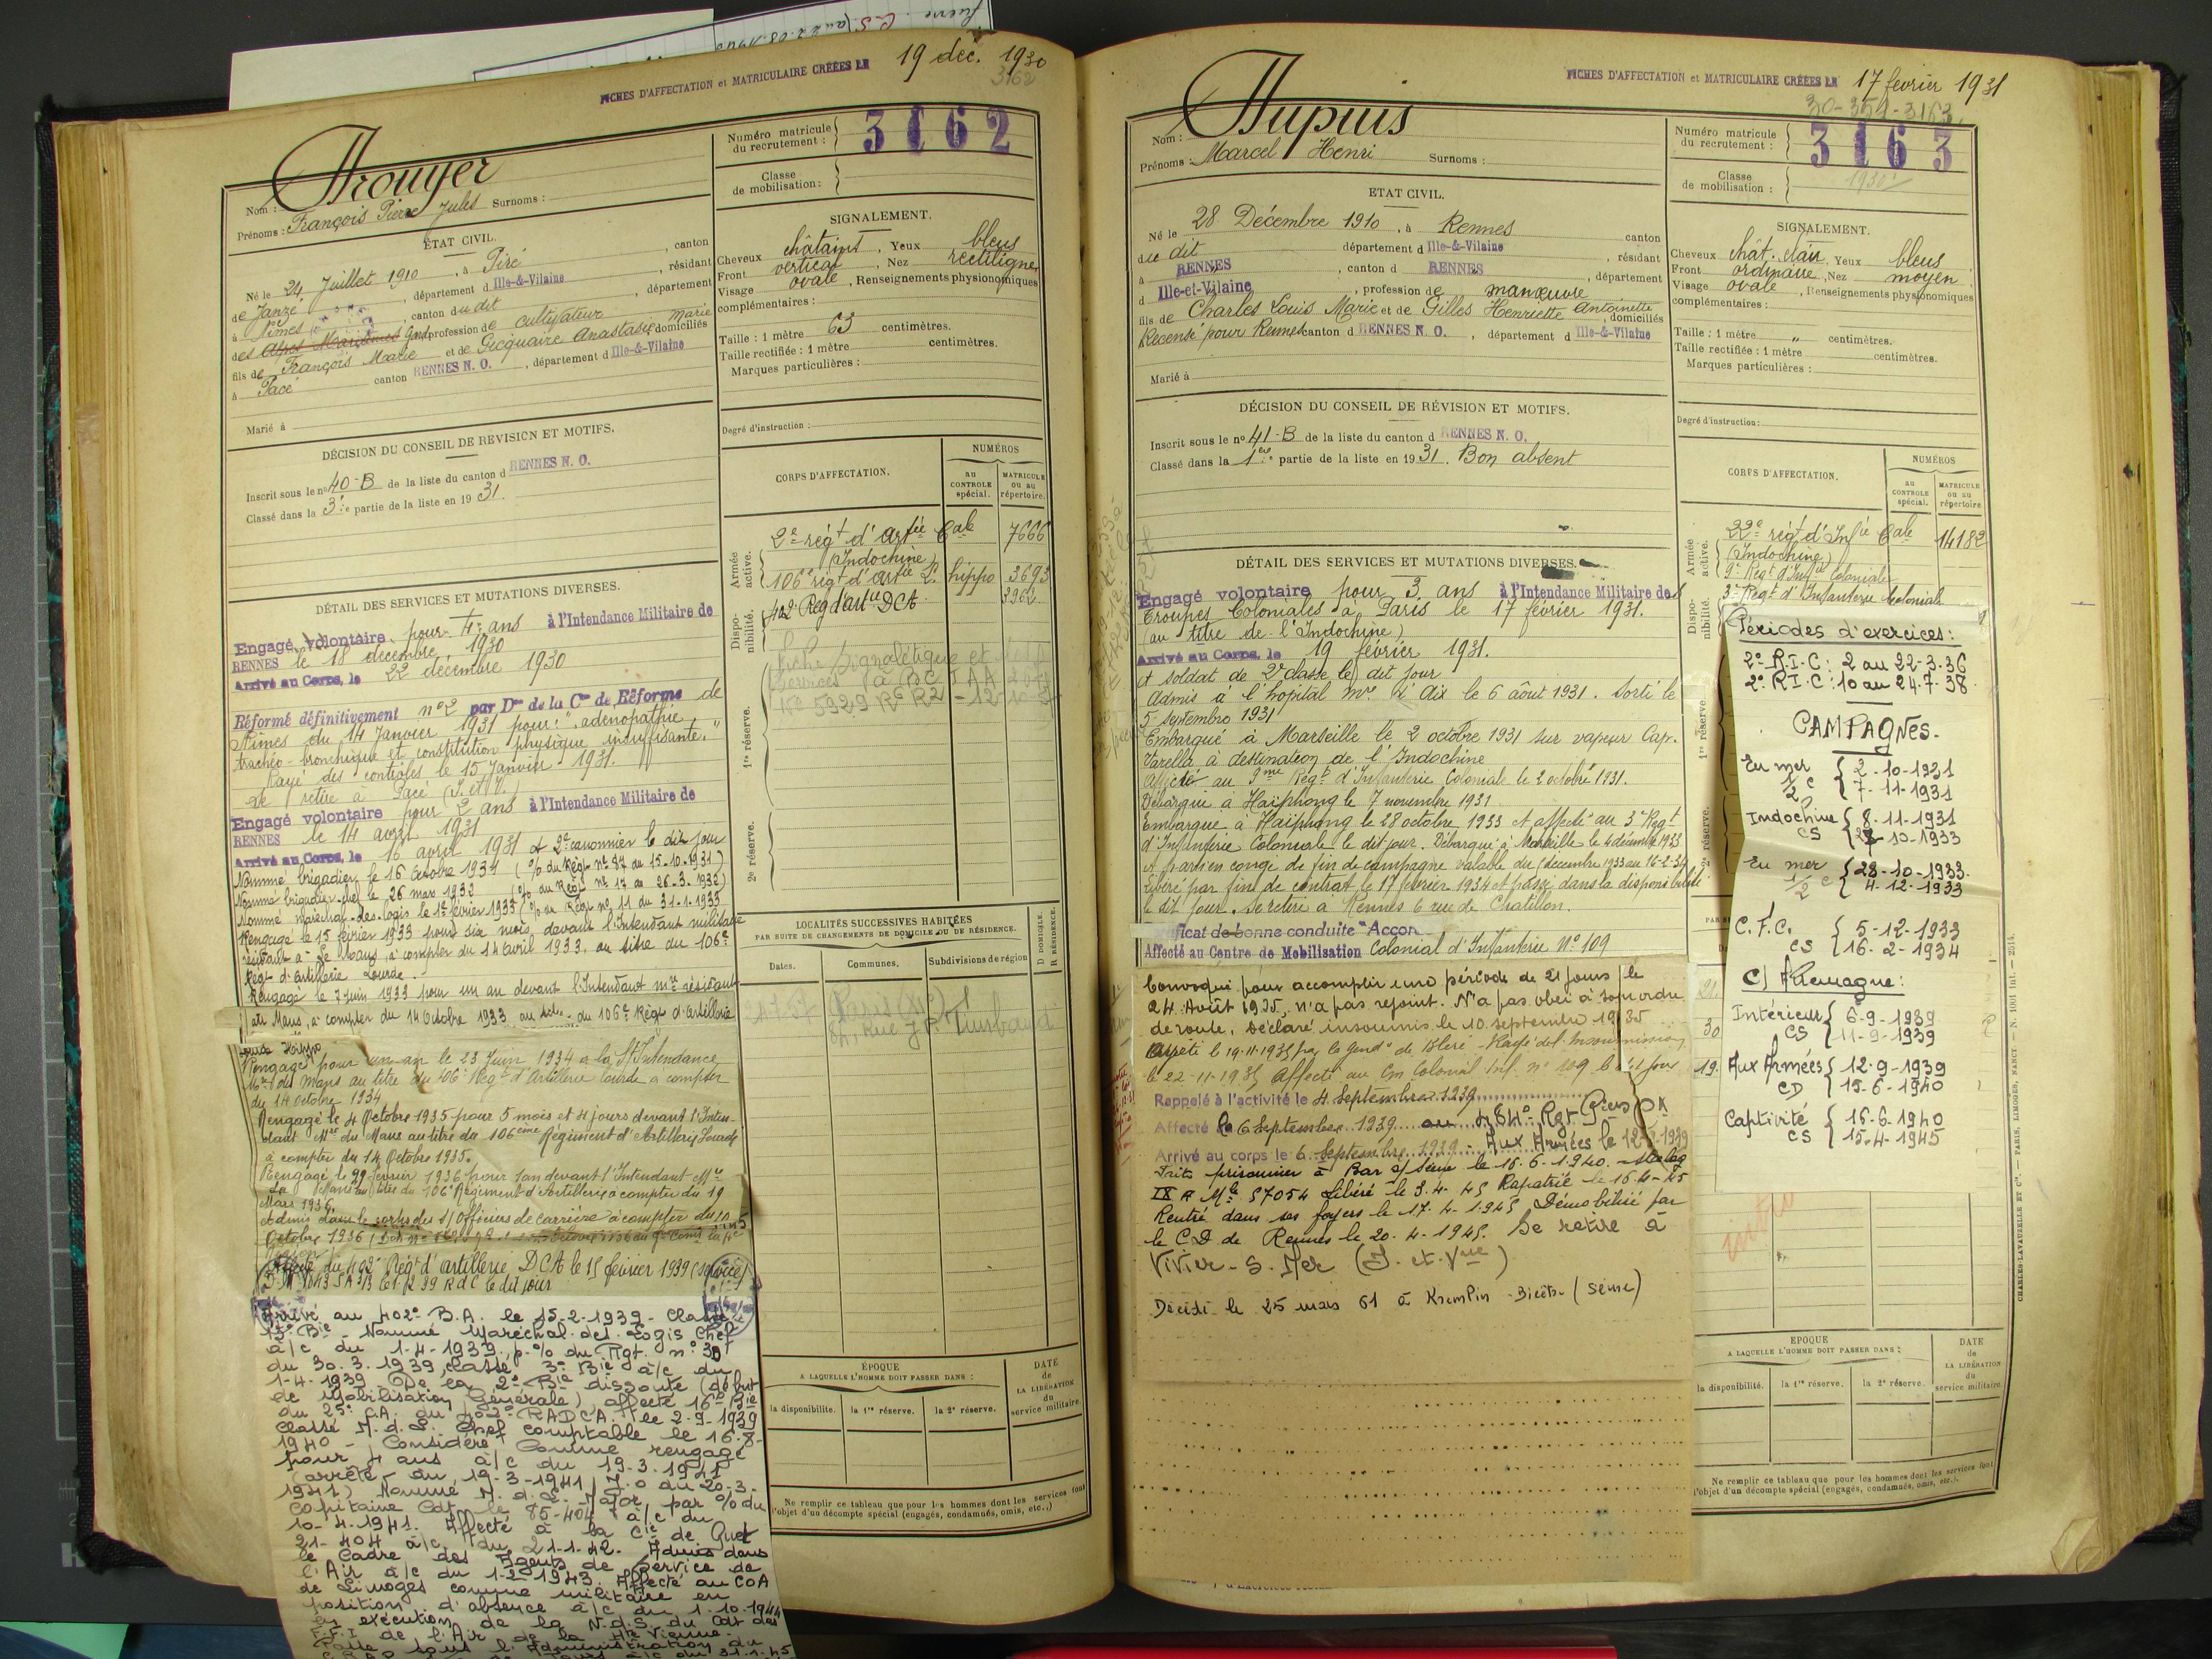 FICHES D'AFFECTATION et MATRICULAIRE CRÉÉES LE 19 déc. 1930
3162
Nom : Trouyer
Prénoms : François Pierre Jules Surnoms :
Numéro matricule du recrutement : 3162
Classe de mobilisation :
ÉTAT CIVIL.
Né le 24 Juillet 1910, à Piré, canton
de Janzé, département d Ille-&-Vilaine, résidant
à Nîmes, canton du dit, département
des Alpes Maritimes Gard profession de cultivateur
fils de François Marie et de Gicquaire Anastasie Marie domiciliés
à Pacé canton RENNES N. O., département d Ille-&-Vilaine
Marié à
SIGNALEMENT.
Cheveux châtains, Yeux bleus
Front vertical, Nez rectiligne
Visage ovale, Renseignements physionomiques
complémentaires :
Taille : 1 mètre 63 centimètres.
Taille rectifiée : 1 mètre centimètres.
Marques particulières :
Degré d'instruction :
DÉCISION DU CONSEIL DE RÉVISION ET MOTIFS.
Inscrit sous le no 40-B de la liste du canton d RENNES N. O.
Classé dans la 3e partie de la liste en 1931.
CORPS D'AFFECTATION.
NUMÉROS
au CONTROLE spécial.
MATRICULE ou au répertoire.
Armée active.
2e régt d'artie Cale 7666
(Indochine)
106e régt d'artie L. hippo 3693
3962
Disponibilité.
402e Reg d'artie DCA
1re réserve.
Fiche signalétique et
2e réserve.
DÉTAIL DES SERVICES ET MUTATIONS DIVERSES.
Engagé volontaire pour 4 ans à l'Intendance Militaire de
RENNES le 18 décembre 1930
Arrivé au Corps, le 22 décembre 1930
Réformé définitivement no 2 par Don de la Con de Réforme de
Nîmes du 14 Janvier 1931 pour : "adénopathie
trachéo-bronchique et constitution physique insuffisante."
Rayé des contrôles le 15 Janvier 1931.
Se retire à Pacé (I. et V.)
Engagé volontaire pour 2 ans à l'Intendance Militaire de
RENNES le 14 avril 1931
Arrivé au Corps, le 16 avril 1931 et 2e canonnier le dit jour
Nommé brigadier le 16 Octobre 1931 (% du Régt no 87 du 15-10-1931)
Nommé brigadier-chef le 26 mars 1932 (% du Régt no 17 du 26-3-1932)
Nommé maréchal-des-logis le 1er février 1933 (% du Régt no 11 du 31-1-1933
Rengagé le 15 février 1933 pour six mois, devant l'Intendant militaire
résidant à Le Mans, à compter du 14 avril 1933, au titre du 106e
Régt d'artillerie Lourde.
Rengagé le 7 juin 1933 pour un an devant l'Intendant mre résidant
au Mans, à compter du 14 Octobre 1933 au titre du 106e Régt d'artillerie
Rengagé pour un an le 23 Juin 1934 à la St Intendance
Mre du Mans au titre du 106e Régt d'Artillerie Lourde à compter
du 14 octobre 1934
Rengagé le 4 Octobre 1935 pour 5 mois et 4 jours devant l'Inten-
dant Mre du Mans au titre du 106ème Régiment d'Artillerie Lourde
à compter du 14 Octobre 1935.
Rengagé le 29 février 1936 pour 1 an devant l'Intendant Mre
du Mans au titre du 106e Régiment d'Artillerie à compter du 19
Mars 1936.
Admis dans le corps des s/Officiers de carrière à compter du 10
Octobre 1936
Affecté du 402e Régt d'artillerie DCA le 15 février 1939 (service)
Arrivé au 402e B.A. le 15-2-1939 - Classé
15e Bie - Nommé Maréchal des Logis Chef
a/c du 1-4-1939 p. % du Rgt. no 30
du 30.3.1939, classé 3e Bie a/c du
1-4-1939. De la 2e Bie dissoute (début
de Mobilisation Générale) affecté 16e Bie
du 25e G.A. du 402e RADCA. le 2-9-1939
Classé M.d.L. Chef comptable le 16-8-
1940 - Considéré comme rengagé
pour 4 ans a/c du 19-3-1941
(arrêté du 19-3-1941 J.O du 20-3-
1941) Nommé M.d.L. Major par % du
Capitaine Cdt. le 85-404 a/c du
10-4-1941. Affecté à la Cie de Guet
21-404 a/c du 21-1-42. Admis dans
le Cadre des Agents de Service de
l'Air a/c du 1-2-1943. Affecté au COA
de Limoges comme militaire en
position d'absence a/c du 1.10.1944
en exécution de la N.d.S. du Cdt des
F.F.I de l'Air de la Hte Vienne.
Passe sous l'Administration du
LOCALITÉS SUCCESSIVES HABITÉES
PAR SUITE DE CHANGEMENTS DE DOMICILE OU DE RÉSIDENCE.
Dates. Communes. Subdivisions de région D DOMICILE. R RÉSIDENCE.
ÉPOQUE
A LAQUELLE L'HOMME DOIT PASSER DANS :
la disponibilité. la 1re réserve. la 2e réserve.
DATE de LA LIBÉRATION du service militaire.
Ne remplir ce tableau que pour les hommes dont les services font
l'objet d'un décompte spécial (engagés, condamnés, omis, etc.,)
FICHES D'AFFECTATION et MATRICULAIRE CRÉÉES LE 17 février 1931
30-354-3163.
Nom : Dupuis
Prénoms : Marcel Henri Surnoms :
Numéro matricule du recrutement : 3163
Classe de mobilisation : 1930
ETAT CIVIL.
Né le 28 Décembre 1910, à Rennes canton
du dit département d Ille-&-Vilaine, résidant
à RENNES, canton d RENNES, département
d Ille-et-Vilaine, profession de manœuvre
fils de Charles Louis Marie et de Gilles Henriette Antoinette domiciliés
Recensé pour Rennes canton d RENNES N. O., département d Ille-&-Vilaine
Marié à
SIGNALEMENT.
Cheveux chât. clair Yeux bleus
Front ordinaire, Nez moyen
Visage ovale, Renseignements physionomiques
complémentaires :
Taille : 1 mètre " centimètres.
Taille rectifiée : 1 mètre centimètres.
Marques particulières :
Degré d'instruction :
DÉCISION DU CONSEIL DE RÉVISION ET MOTIFS.
Inscrit sous le no 41-B de la liste du canton d RENNES N. O.
Classé dans la 1ère partie de la liste en 1931. Bon absent
CORPS D'AFFECTATION.
NUMÉROS
au CONTROLE spécial.
MATRICULE ou au répertoire
Armée active.
22e régt d'Infie Cale 14182
(Indochine)
9e Regt d'Infie Coloniale
3e Regt d'Infanterie Coloniale
Disponibilité.
1re réserve.
2e réserve.
DÉTAIL DES SERVICES ET MUTATIONS DIVERSES.
Engagé volontaire pour 3 ans à l'Intendance Militaire des
Troupes Coloniales à Paris le 17 février 1931.
(au titre de l'Indochine)
Arrivé au Corps, le 19 février 1931.
et soldat de 2e classe le dit jour
Admis à l'hôpital mre d'Aix le 6 août 1931. Sorti le
5 septembre 1931
Embarqué à Marseille le 2 octobre 1931 sur vapeur Cap.
Varella à destination de l'Indochine
Affecté au 9me Régt d'Infanterie Coloniale le 2 octobre 1931.
Débarqué à Haïphong le 7 novembre 1931
Embarqué à Haïphong le 28 octobre 1933 et affecté au 3e Regt
d'Infanterie Coloniale le dit jour. Débarqué à Marseille le 4 décembre 1933
et parti en congé de fin de campagne valable du 5 décembre 1933 au 16-2-34
Libéré par fin de contrat le 17 février 1934 et passé dans la disponibilité
le dit jour. Se retire à Rennes 6 rue de Chatillon.
ficat de bonne conduite "Accor
Affecté au Centre de Mobilisation Colonial d'Infanterie No 109
Convoqué pour accomplir une période de 21 jours le
24 Août 1935, n'a pas rejoint. N'a pas obéi à son ordre
de route. Déclaré insoumis le 10 septembre 1935
Arrêté le 19-11-1935 par la Gendie de Bléré - Rayé de l'insoumission
le 22-11-1935 Affecté au Cm Colonial Inf. no 109 le dit jour
Rappelé à l'activité le 4 Septembre 1939
Affecté le 6 Septembre 1939 au Rgt
Arrivé au corps le 6 Septembre 1939 - Aux Armées le 12-9-1939
Faits prisonnier à Bar s/ Seine le 15-6-1940. - Stalag
IX A Mle 57054 Libéré le 3-4-45 Rapatrié le 16-4-45
Rentré dans ses foyers le 17-4-1945 Démobilisé par
le CD de Rennes le 20-4-1945. Se retire à
Vivier-S-Mer (I. et Vne)
Décédé le 25 mars 61 à Kremlin-Bicêtre (Seine)
Périodes d'exercices :
2e R.I.C : 2 au 22-3-36
2e R.I.C : 10 au 24.7-38
CAMPAGNES.
En mer 1/2 C { 2-10-1931
7-11-1931
Indochine CS { 8-11-1931
27-10-1933
En mer 1/2 C { 28-10-1933
4-12-1933
C.F.C. CS { 5-12-1933
16-2-1934
C/ Allemagne :
Intérieur CS { 6-9-1939
11-9-1939
Aux Armées CD { 12-9-1939
15-6-1940
Captivité CS { 16-6-1940
15-4-1945
ÉPOQUE
A LAQUELLE L'HOMME DOIT PASSER DANS :
la disponibilité. la 1re réserve. la 2e réserve.
DATE de LA LIBÉRATION du service militaire.
Ne remplir ce tableau que pour les hommes dont les services font
l'objet d'un décompte spécial (engagés, condamnés, omis, etc.,).
CHARLES-LAVAUZELLE ET Cie. — PARIS, LIMOGES, NANCY